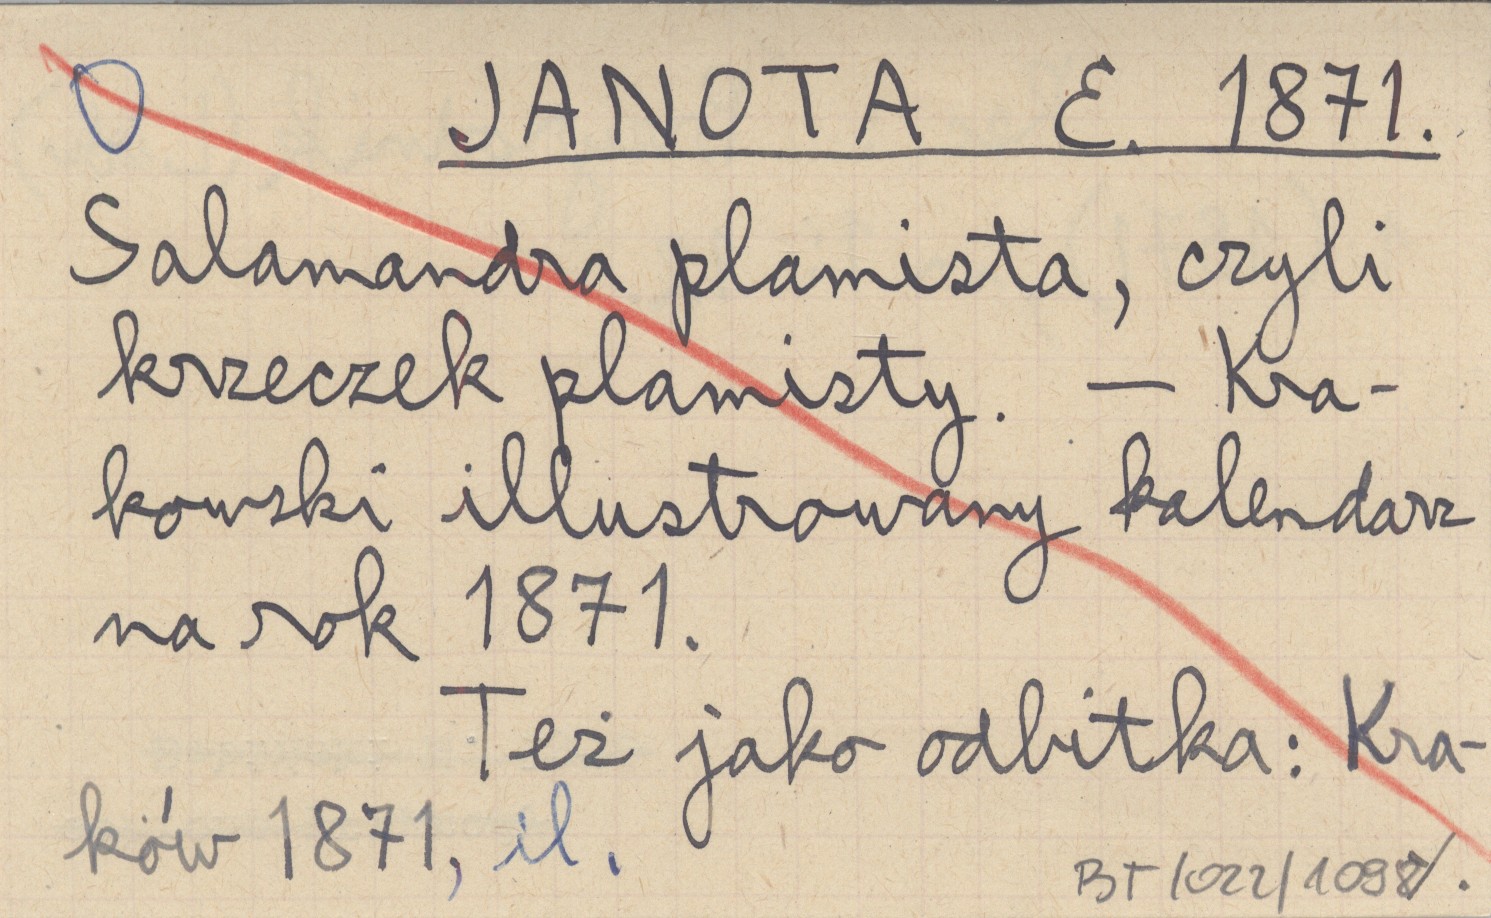 JANOTA E. 1871.
Salamandra plamista, czyli
krzeczek plamisty. — Kra-
kowski illustrowany kalendarz
na rok 1871.
Też jako odbitka: Kra-
ków 1871, il.
BT/022/1098/.